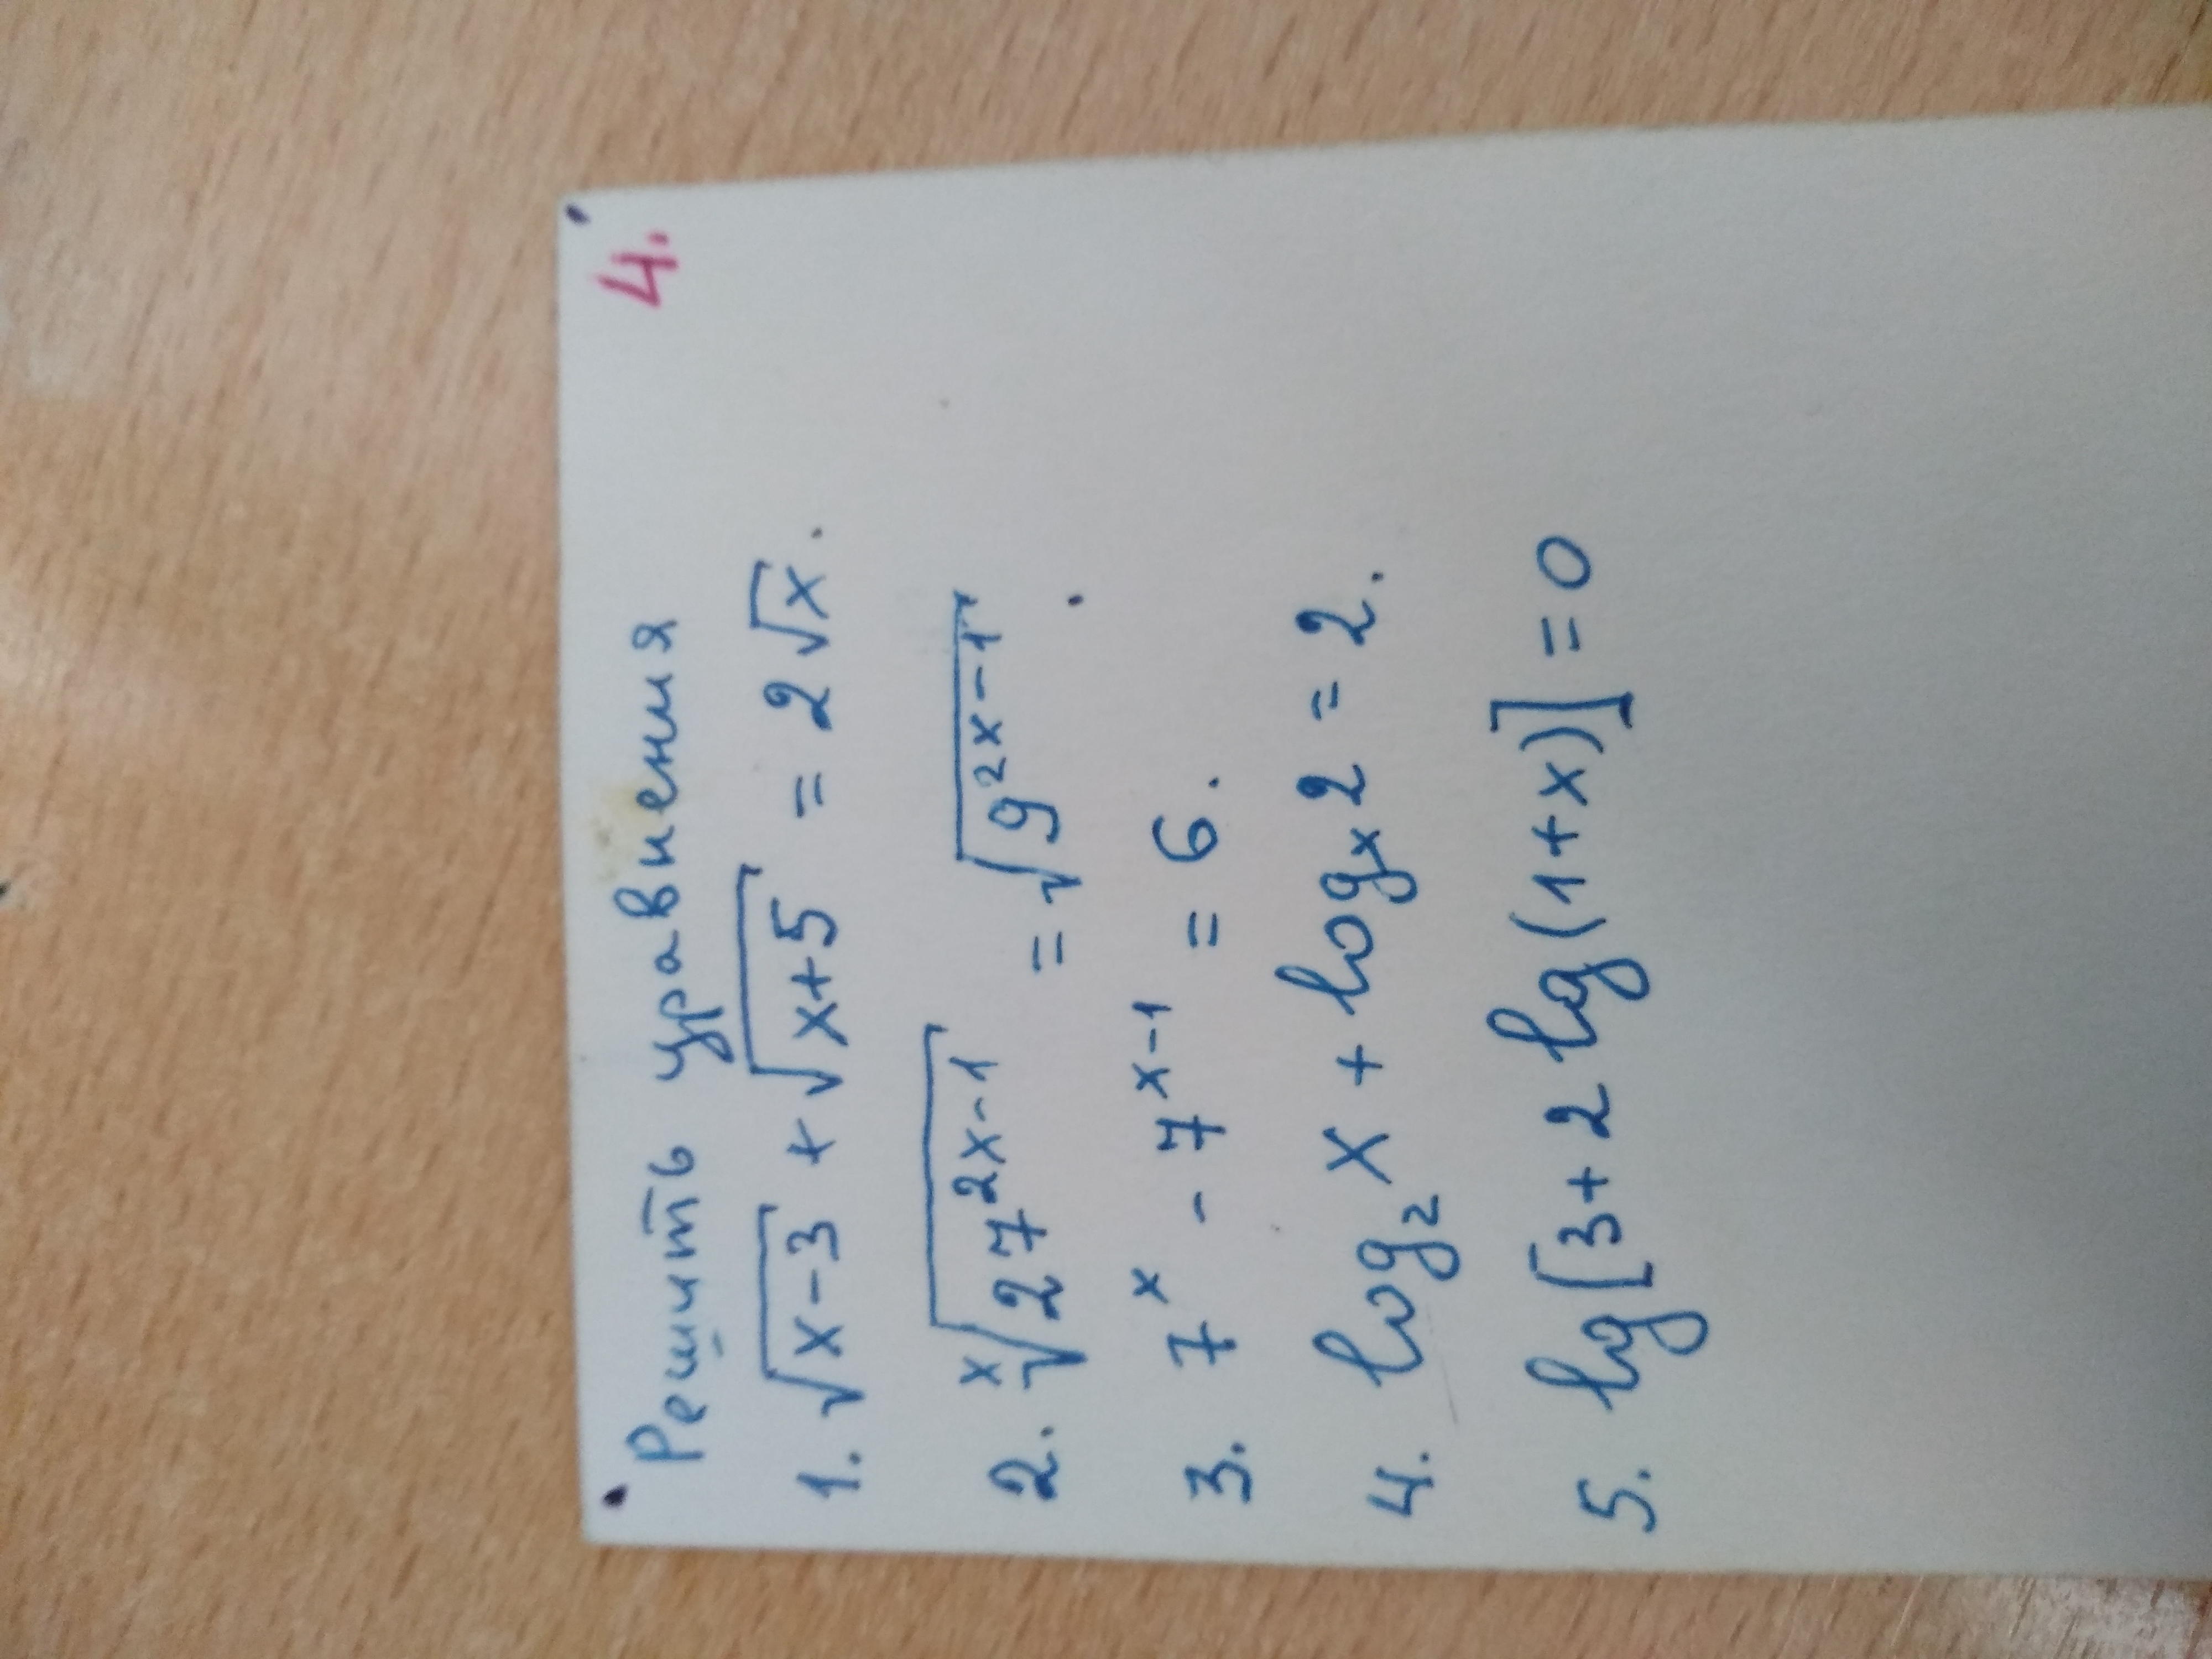 4.
Решить уравнения
1. √(x-3) + √(x+5) = 2√x.
2. ˣ√(27²ˣ⁻¹) = √(9²ˣ⁻¹).
3. 7ˣ - 7ˣ⁻¹ = 6.
4. log₂x + logₓ2 = 2.
5. lg[3+2lg(1+x)] = 0